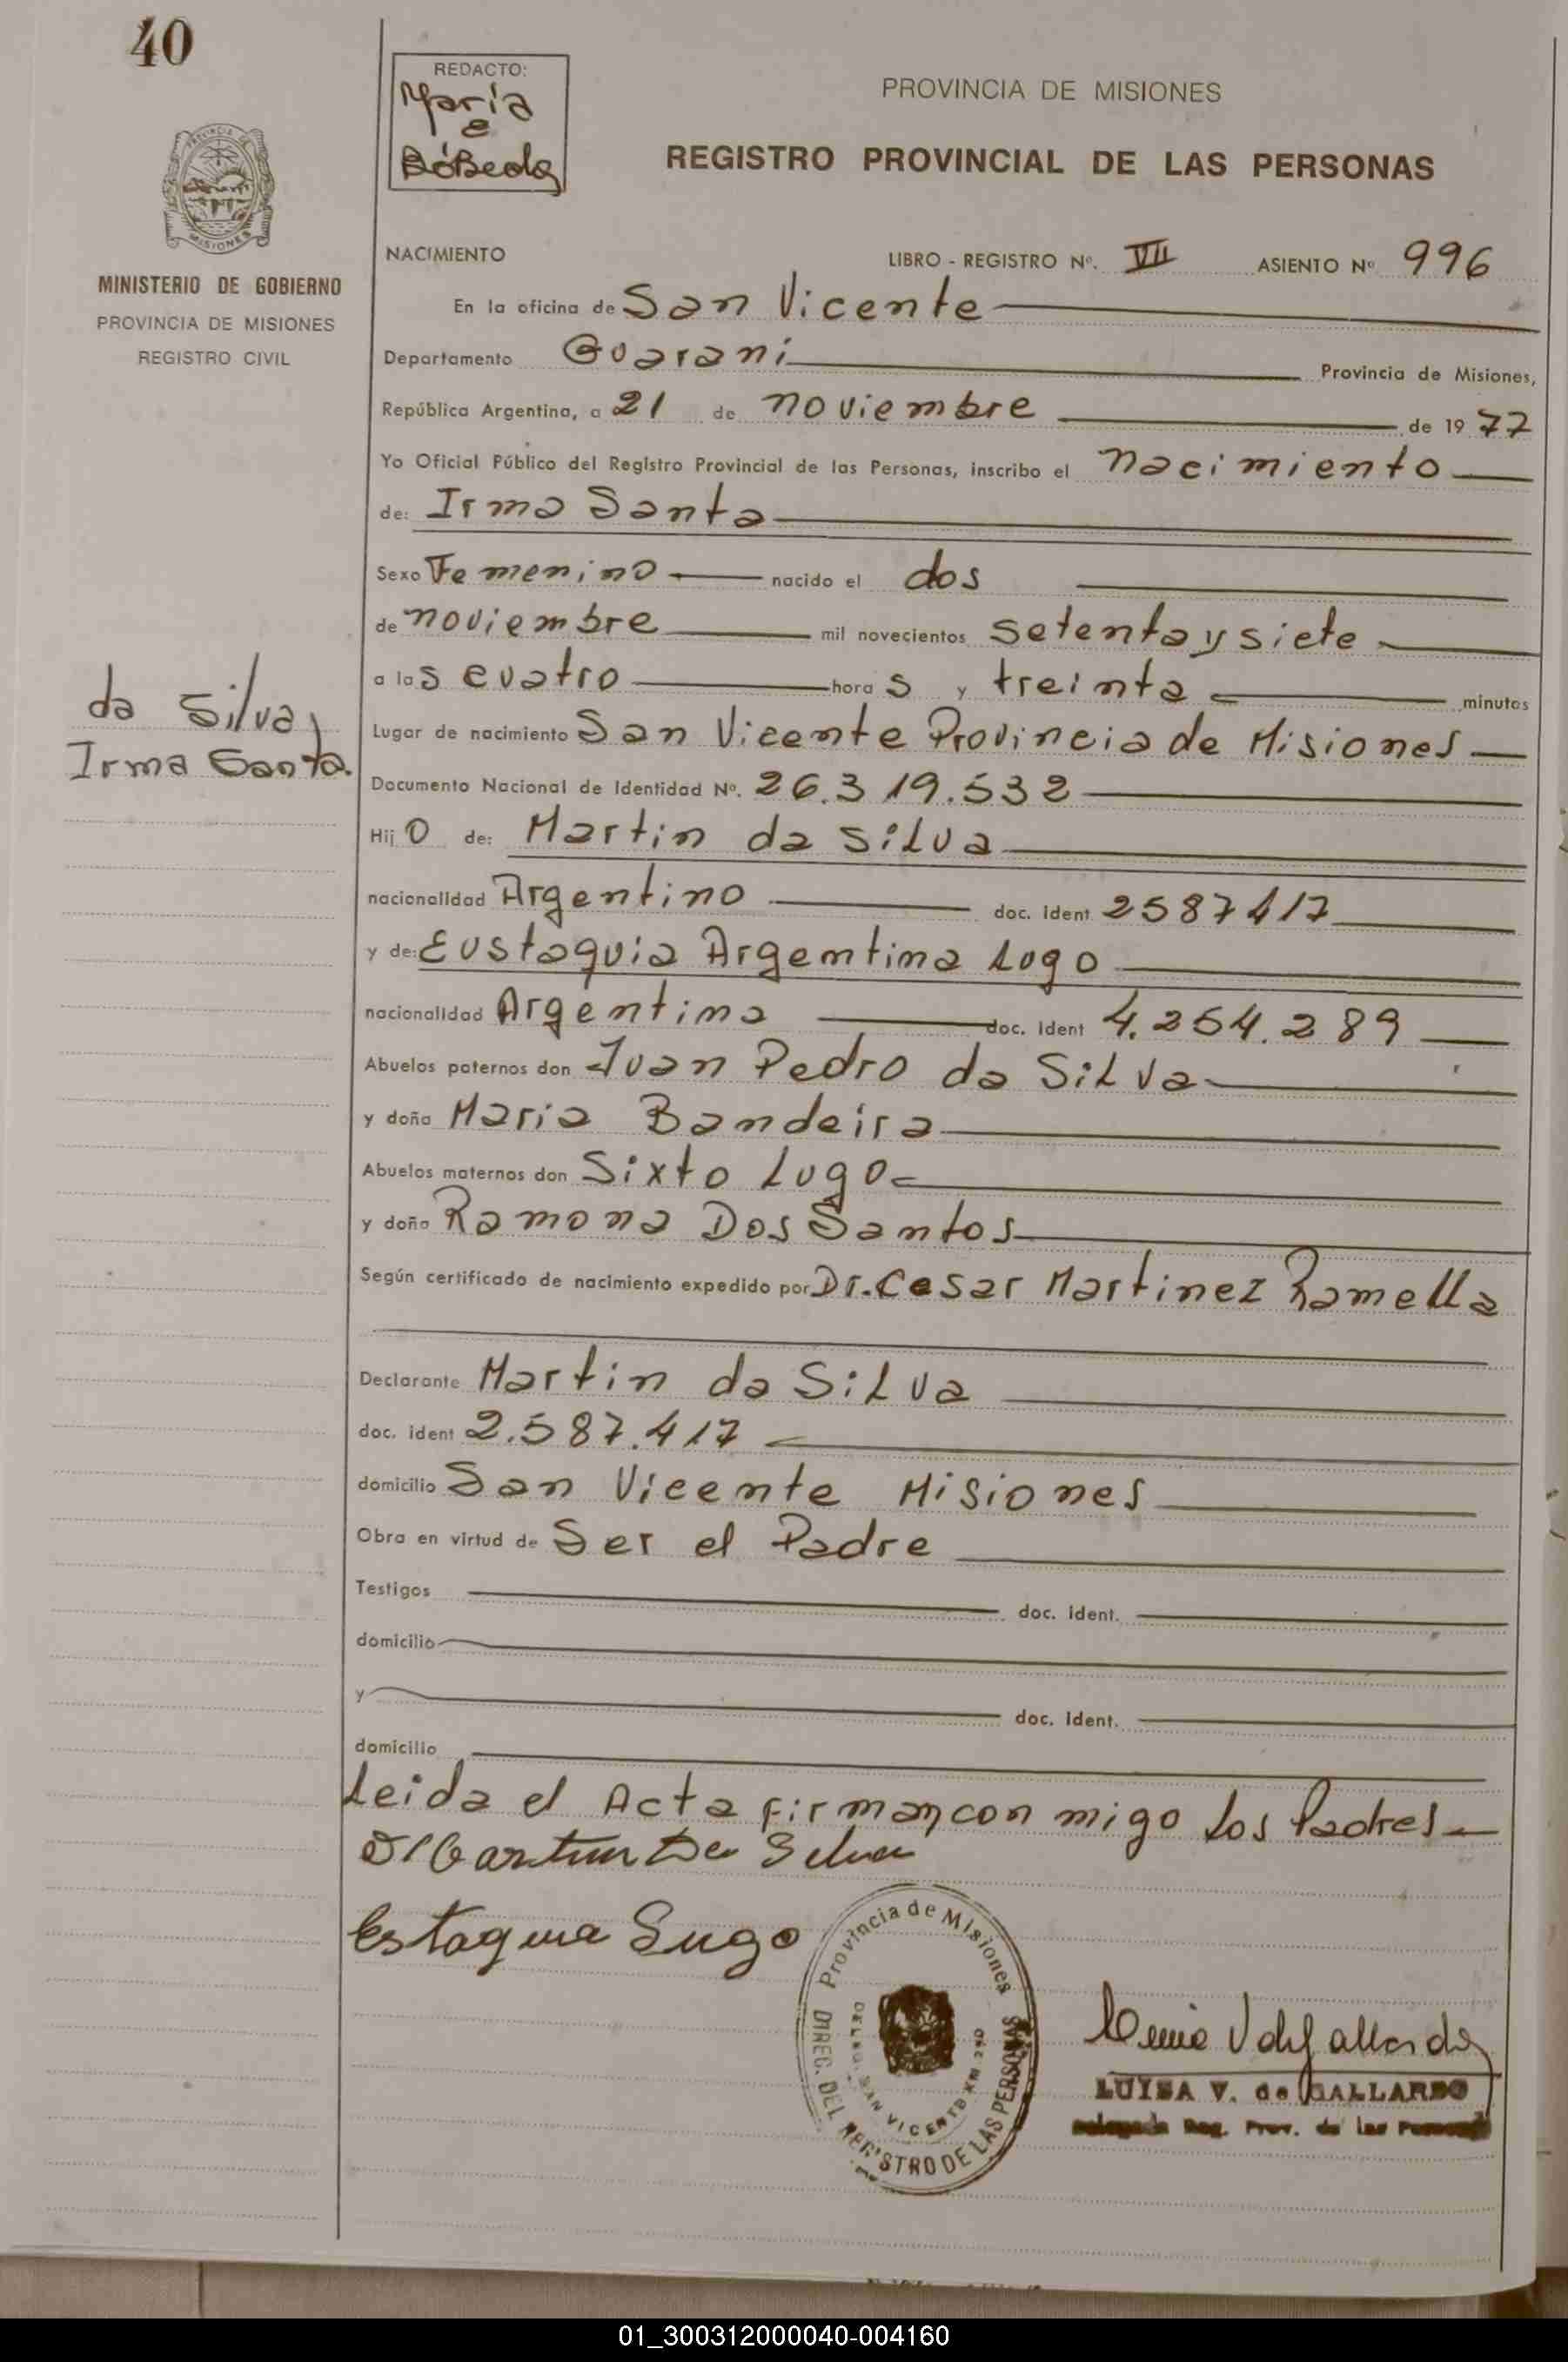 40
REDACTO:
Maria
e
BóBeda
PROVINCIA DE MISIONES
REGISTRO PROVINCIAL DE LAS PERSONAS
PROVINCIA DE
MISIONES
MINISTERIO DE GOBIERNO
PROVINCIA DE MISIONES
REGISTRO CIVIL
NACIMIENTO LIBRO - REGISTRO Nº. VII ASIENTO Nº 996
En la oficina de San Vicente
Departamento Guarani Provincia de Misiones,
República Argentina, a 21 de noviembre de 1977
Yo Oficial Público del Registro Provincial de las Personas, inscribo el nacimiento
de: Irma Santa
Sexo Femenino nacido el dos
de noviembre mil novecientos setenta y siete
a las cuatro horas y treinta minutos
da Silva,
Irma Santa.
Lugar de nacimiento San Vicente Provincia de Misiones
Documento Nacional de Identidad Nº. 26.319.532
Hijo de: Martin da Silva
nacionalidad Argentino doc. ident 2587417
y de: Eustaquia Argentina Lugo
nacionalidad Argentina doc. ident 4.254.289
Abuelos paternos don Juan Pedro da Silva
y doña Maria Bandeira
Abuelos maternos don Sixto Lugo
y doña Ramona Dos Santos
Según certificado de nacimiento expedido por Dr. Cesar Martinez Ramella
Declarante Martin da Silva
doc. ident 2.587.417
domicilio San Vicente Misiones
Obra en virtud de Ser el Padre
Testigos doc. ident.
domicilio
y doc. ident.
domicilio
Leida el Acta firman con migo los Padres
Martin Da Silva
Estaquia Lugo
Provincia de Misiones
DIREC. DEL REGISTRO DE LAS PERSONAS
SAN VICENTE KM
LUISA V. de GALLARDO
Delegada Reg. Prov. de las Personas
01_300312000040-004160